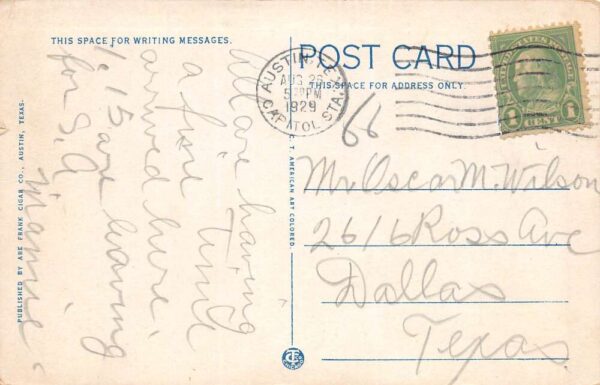 THIS SPACE FOR WRITING MESSAGES.
All are having
a fine time
arrived here
1:15 are leaving
for S.A.
"Mamie"
PUBLISHED BY ABE FRANK CIGAR CO., AUSTIN, TEXAS.
C. T. AMERICAN ART COLORED.
POST CARD
THIS SPACE FOR ADDRESS ONLY.
AUSTIN, TEX.
AUG 26
5 PM
1929
CAPITOL STA.
66
UNITED STATES POSTAGE
1 CENT 1
Mr. Oscar M. Wilson
2616 Ross Ave
Dallas
Texas